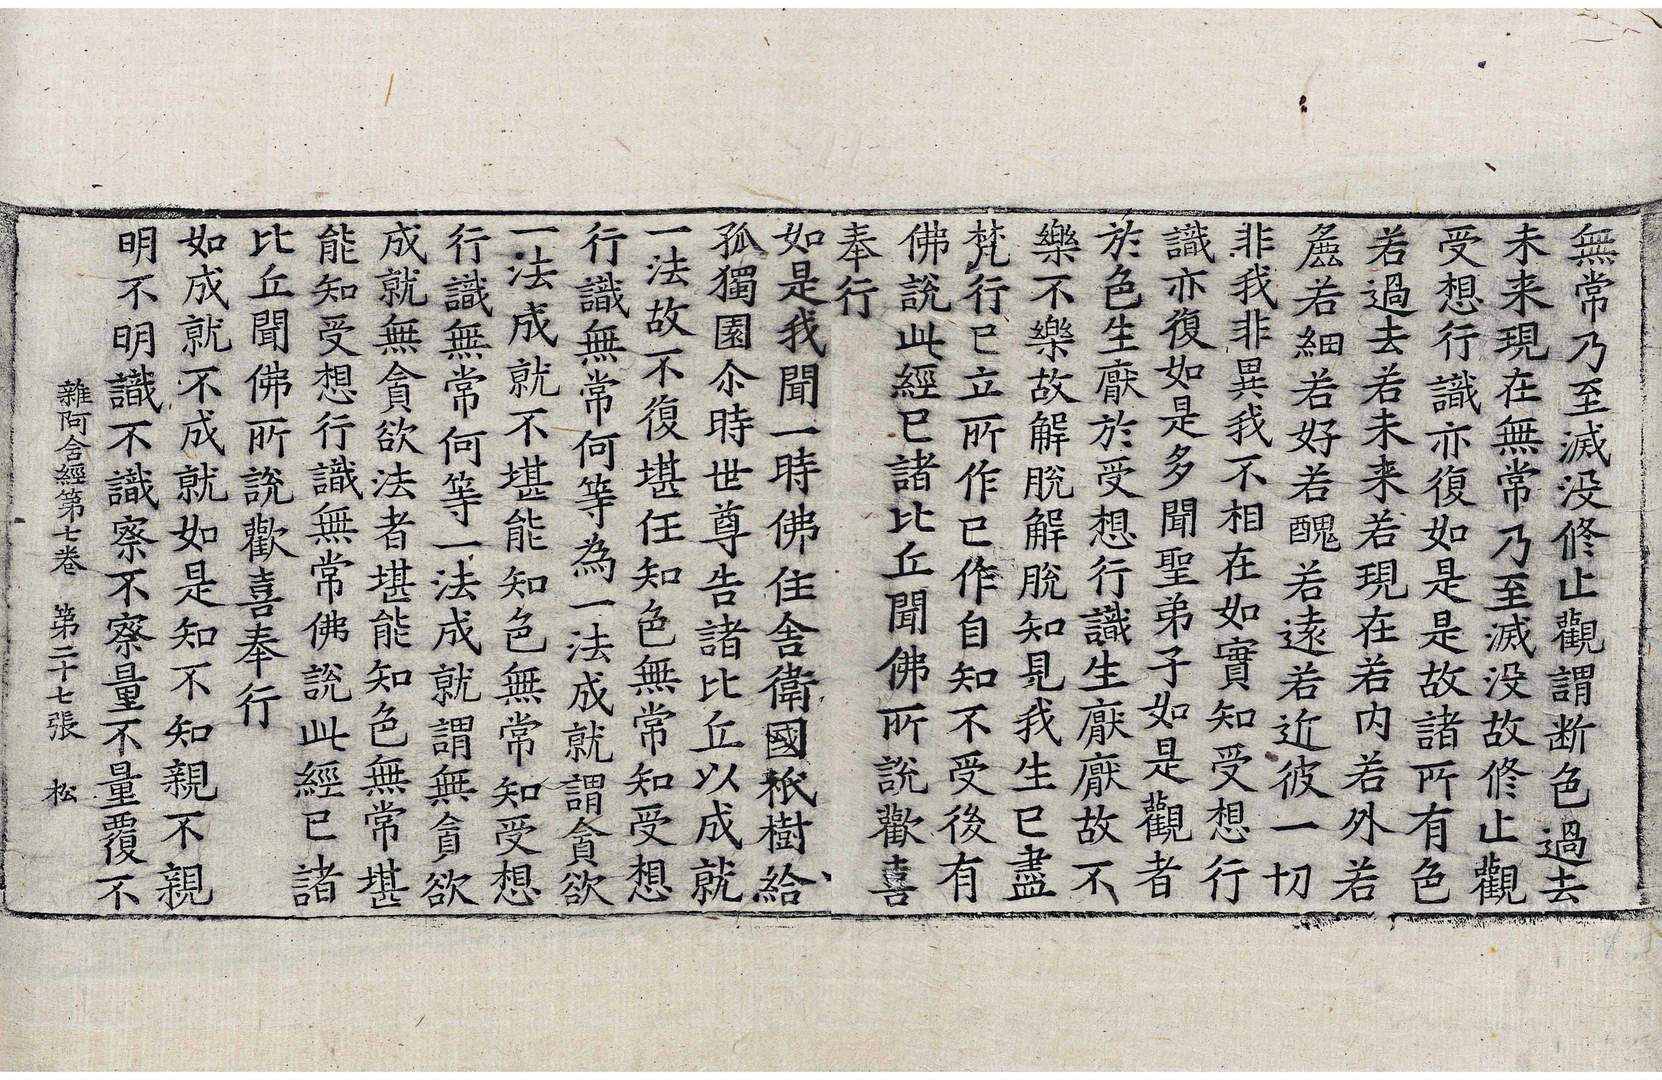 無常乃至滅没修止觀謂断色過去
未来現在無常乃至滅没故修止觀
受想行識亦復如是是故諸所有色
若過去若未来若現在若内若外若
麁若細若好若醜若遠若近彼一切
非我非異我不相在如實知受想行
識亦復如是多聞聖弟子如是觀者
於色生厭於受想行識生厭厭故不
樂不樂故解脫解脫知見我生已盡
梵行已立所作已作自知不受後有
佛說此經已諸比丘聞佛所說歡喜
奉行
如是我聞一時佛住舍衛國祇樹給
孤獨園尒時世尊告諸比丘以成就
一法故不復堪任知色無常知受想
行識無常何等為一法成就謂貪欲
一法成就不堪能知色無常知受想
行識無常何等一法成就謂無貪欲
成就無貪欲法者堪能知色無常堪
能知受想行識無常佛說此經已諸
比丘聞佛所說歡喜奉行
如成就不成就如是知不知親不親
明不明識不識察不察量不量覆不
雜阿含經第七卷 第二十七張 松